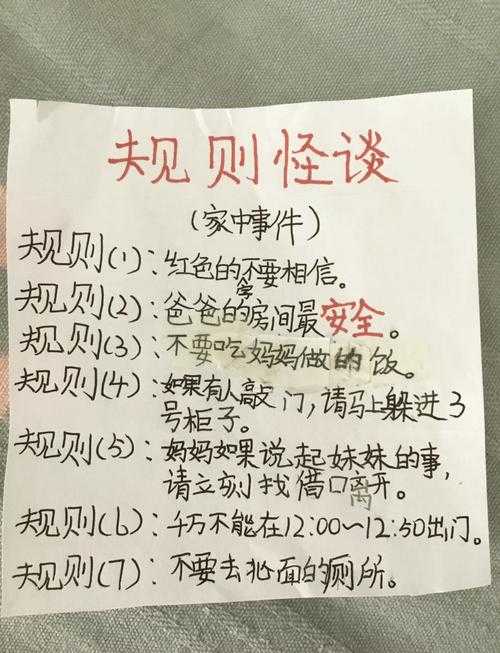 规则怪谈
(家中事件)
规则(1):红色的字不要相信。
规则(2):爸爸的房间最安全。
规则(3):不要吃妈妈做的饭。
规则(4):如果有人敲门,请马上躲进3
号柜子。
规则(5):妈妈如果说起妹妹的事,
请立刻找借口离开。
规则(6):千万不能在12:00~12:50出门。
规则(7):不要去北面的厕所。